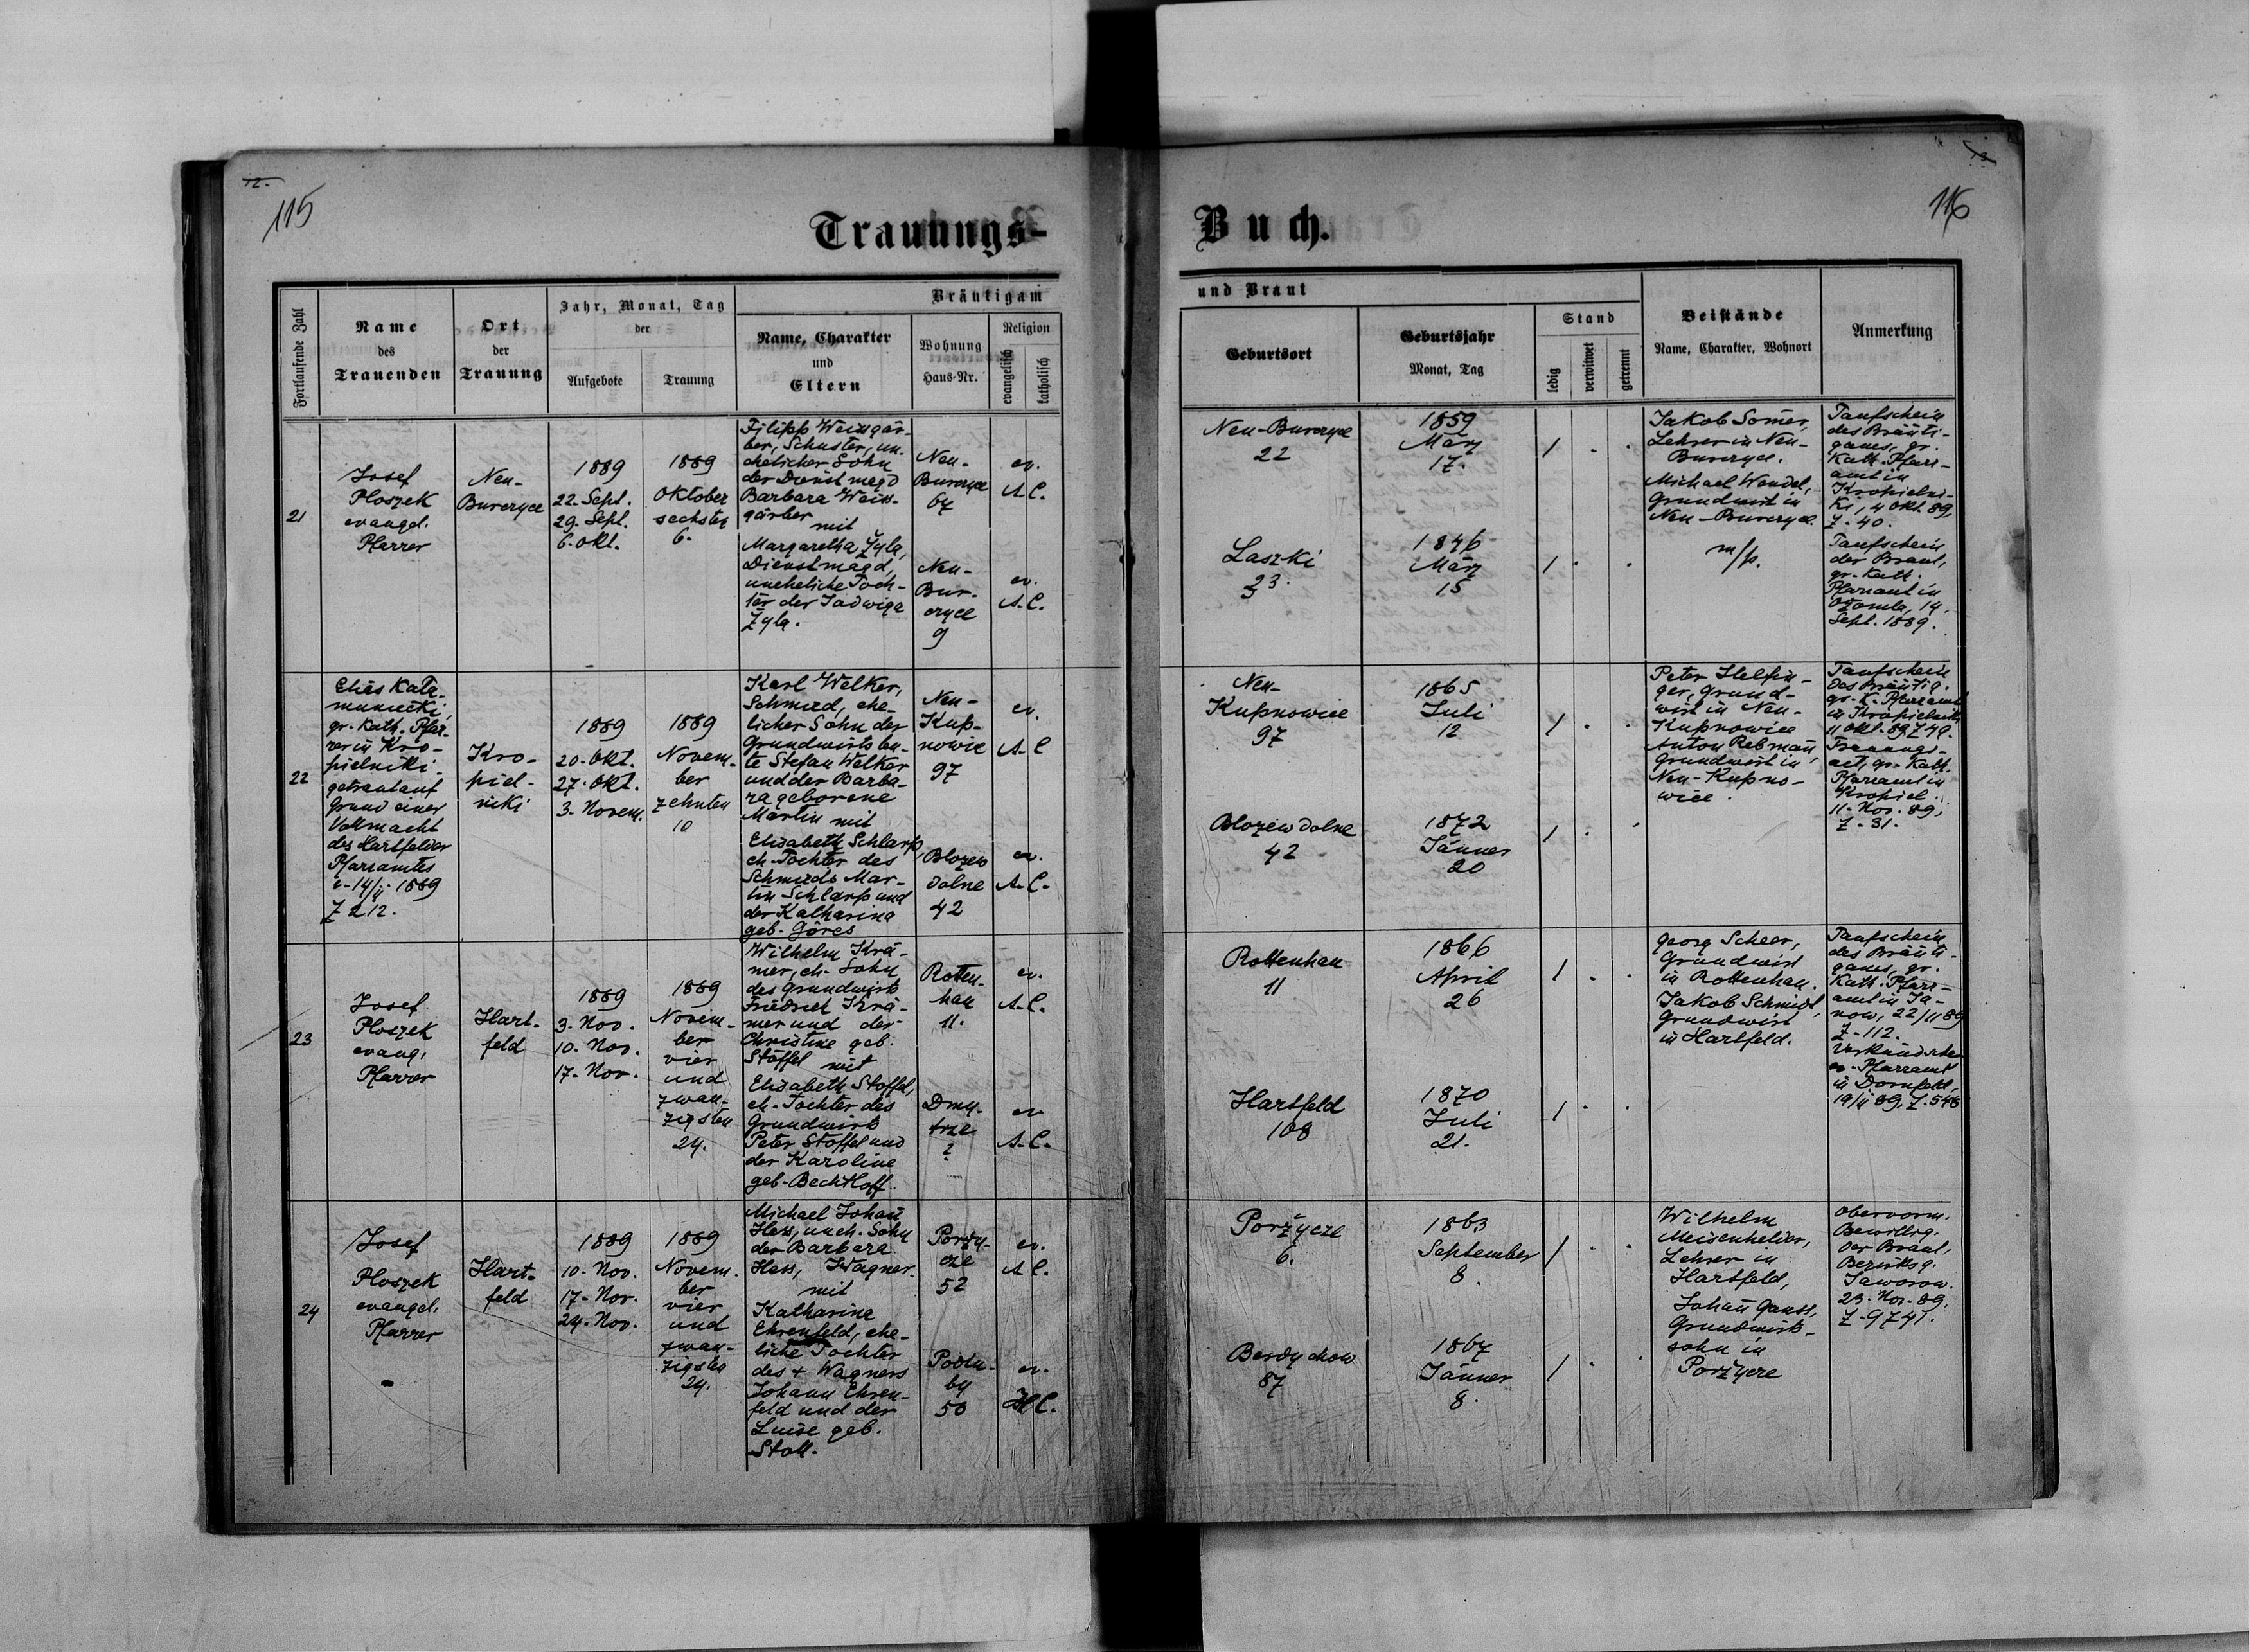 12.
115
116
Trauungs-
Buch.
Fortlaufende Zahl
Name
des
Trauenden
Ort
der
Trauung
Jahr, Monat, Tag
der
Aufgebote
Trauung
Bräutigam
Name, Charakter
und
Eltern
Wohnung
Haus-Nr.
Religion
evangelisch
katholisch
und Braut
Geburtsort
Geburtsjahr
Monat, Tag
Stand
ledig
verwitwet
getrennt
Beistände
Name, Charakter, Wohnort
Anmerkung
21
Josef
Ploszek
evangel.
Pfarrer
Neu-
Burczyce
1889
22. Sept.
29. Sept.
6. Okt.
1889
Oktober
sechsten
6.
Filipp Weingär-
ber, Schuster, un-
ehelicher Sohn
der Dienstmagd
Barbara Wein-
gärber
mit
Margaretha Zyla,
Dienstmagd,
uneheliche Toch-
ter der Jadwiga
Zyla.
Neu-
Burczyce
64
Neu-
Bur-
czyce
9
ev.
A.C.
ev.
A.C.
Neu-Burczyce
22
Laszki
23.
1859
März
17.
1846
März
15
/ . .
/ . .
Jakob Somer,
Lehrer in Neu-
Burczyce.
Michael Wendel,
Grundwirt in
Neu-Burczyce.
m/p.
Taufschein
des Bräuti-
gams, gr.
Kath. Pfarr-
amt in
Kropielni-
ki, 4 Okt. 89,
Z. 40.
Taufschein
der Braut,
gr. Kath.
Pfarramt in
Ozomla, 14.
Sept. 1889.
22
Elias Kata-
muniecki,
gr. Kath. Pfar-
rer in Kro-
pielniki
getraut auf
Grund einer
Vollmacht
des Hartfelder
Pfarramtes
v. 14/11 1889
Z 212.
Kro-
piel-
niki
1889
20. Okt.
27. Okt.
3. Novem.
1889
Novem-
ber
zehnten
10
Karl Welker,
Schmied, ehe-
licher Sohn der
Grundwirtsleu-
te Stefan Welker
und der Barba-
ra geborene
Martin mit
Elisabeth Schlarp,
eh. Tochter des
Schmieds Mar-
tin Schlarp und
der Katharina
geb. Göres
Neu-
Kup-
nowice
97
Blozew
dolne
42
ev.
A.C
ev.
A.C.
Neu-
Kupnowice
97
Blozew dolne
42
1865
Juli
12
1872
Jänner
20
/ . .
/ . .
Peter Helfin-
ger, Grund-
wirt in Neu-
Kupnowice
Anton Rebman,
Grundwirt in
Neu-Kupno-
wice.
Taufschein
des Bräutig.
gr. K. Pfarramt
in Kropielniki
11 Okt. 89 Z 49.
Trauungs-
act, gr. Kath.
Pfarramt in
Kropiel.
11. Nov. 89,
Z. 31.
23
Josef
Ploszek
evang.
Pfarrer
Hart-
feld
1889
3. Nov.
10. Nov.
17. Nov.
1889
Novem-
ber
vier
und
zwan-
zigsten
24.
Wilhelm Krä-
mer, eh. Sohn
des Grundwirts
Friedrich Krä-
mer und der
Christine geb.
Stoffel mit
Elisabeth Stoffel,
eh. Tochter des
Grundwirts
Peter Stoffel und
der Karoline
geb. Bechthoff.
Rotten-
hau
11.
Dmy-
trze
?
ev.
A.C.
ev
A.C.
Rottenhau
11
Hartfeld
108
1866
April
26
1870
Juli
21.
/ . .
/ . .
Georg Scheer,
Grundwirt
in Rottenhau.
Jakob Schmidt,
Grundwirt
in Hartfeld.
Taufschein
des Bräuti-
gams, gr.
Kath. Pfarr-
amt in Ja-
now, 22/11 89
Z. 112.
ev. Pfarramt
in Dornfeld,
19/11 89, Z. 548
24
Josef
Ploszek
evangel.
Pfarrer
Hart-
feld
1889
10. Nov.
17. Nov.
24. Nov.
1889
Novem-
ber
vier
und
zwan-
zigsten
24.
Michael Johan
Hess, uneh. Sohn
der Barbara
Hess, Wagner.
mit
Katharina
Ehrenfeld, ehe-
liche Tochter
des + Wagners
Johann Ehren-
feld und der
Luise geb.
Stoll.
Porzy-
cze
52
Podlu-
by
50
ev.
A.C.
ev.
H.C.
Porżycze
6.
Berdychow
87
1863
September
8.
1867
Jänner
8.
/ . .
/ . .
Wilhelm
Meisenhelder,
Lehrer in
Hartfeld,
Johan Gauss,
Grundwirts-
sohn in
Porżycze
Obervorm.
Bewillig.
der Braut,
Bezirksg.
Jaworow.
23. Nov. 89.
Z. 9741.